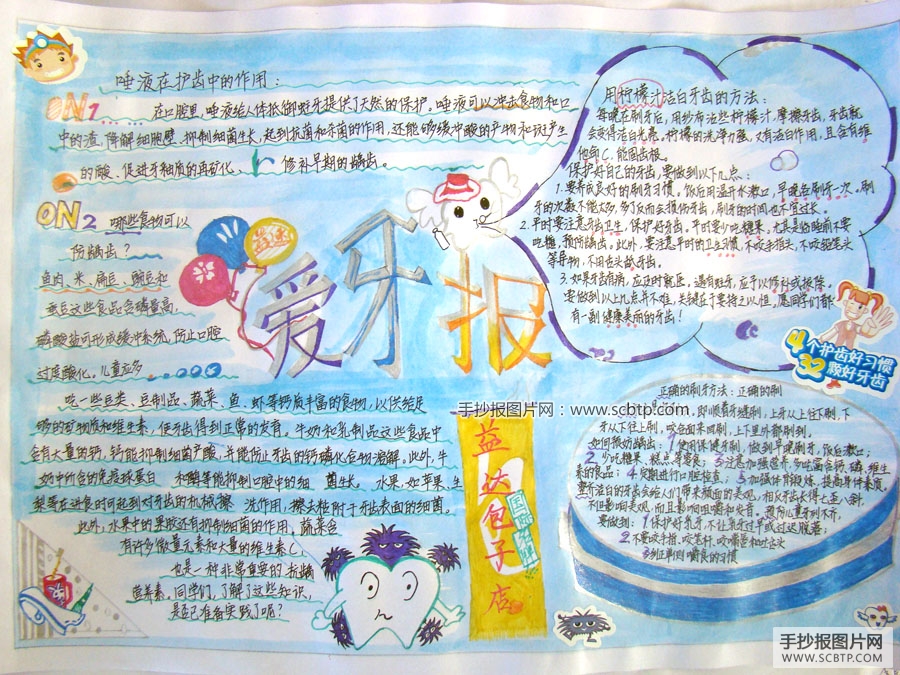 唾液在护齿中的作用：
NO1
在口腔里，唾液给人体抵御蛀牙提供了天然的保护。唾液可以冲击食物和口
中的渣、降解细胞壁、抑制细菌生长，起到抗菌和杀菌的作用，还能够缓冲酸的产物和误产生
的酸、促进牙釉质的再矿化、修补早期的龋齿。
NO2
哪些食物可以
防龋齿？
鱼肉、米、扁豆、豌豆和
蚕豆这些食品含磷量高，
磷酸盐可形成缓冲系统，防止口腔
过度酸化。儿童应多
吃一些豆类、豆制品、蔬菜、鱼、虾等钙质丰富的食物，以供给足
够的矿物质和维生素，使牙齿得到正常的发育。牛奶和乳制品这些食品中
含有大量的钙，钙能抑制细菌产酸，并能防止牙齿的钙磷化合物溶解。此外，牛
奶中所含的免疫球蛋白 和酶等能抑制口腔中的细 菌生长。 水果，如苹果、生
梨等在进食时可起到对牙齿的机械擦 洗作用，擦去粘附于牙齿表面的细菌。
此外，水果中的果胶还有抑制细菌的作用、蔬菜含
有许多微量元素和大量的维生素C，
也是一种非常重要的抗龋
营养素。同学们，了解了这些知识，
是否已准备实践了呢？
益达
爱牙报
用柠檬汁洁白牙齿的方法：
每晚在刷牙后，用纱布沾些柠檬汁，摩擦牙齿，牙齿就
会变得洁白光亮。柠檬的洗净力强，又有洁白作用，且含有维
他命C，能固齿根。
保护好自己的牙齿，要做到以下几点：
1. 要养成良好的刷牙习惯。饭后用温开水漱口，早晚各刷牙一次。刷
牙的次数不能太多，多了反而会损伤牙齿，刷牙的时间也不宜过长。
2. 平时要注意牙齿卫生，保护好牙齿。平时要少吃糖果，尤其是临睡前不要
吃糖，预防龋齿。此外，要注意平时的卫生习惯，不咬手指头，不咬铅笔头
等异物，不用舌头舔牙齿。
3. 如果牙齿有病，应及时就医。遇有蛀牙，应予以修补或拔除。
要做到以上几点并不难，关键在于要持之以恒。愿同学们都
有一副健康美丽的牙齿！
4个护齿好习惯
32颗好牙齿
手抄报图片网：www.scbtp.com
益达包子店
正确的刷牙方法：正确的刷
即顺着牙缝刷，上牙从上往下刷，下
牙从下往上刷，咬合面来回刷，上下里外都刷到。
如何预防龋齿：1使用保健牙刷，做到早晚刷牙，饭后漱口；
2少吃糖果、糕点等零食；3注意加强营养，多吃富含钙、磷、维生
素的食品；4定期进行口腔检查；5加强体育锻炼，提高身体素质。
整齐洁白的牙齿会给人们带来颜面的美观，相反牙齿长得七歪八斜，
不但影响美观，而且影响咀嚼和发音。预防儿童牙列不齐，
要做到：1保护好乳牙，不让乳牙过早或过迟脱落；
2不要咬手指、咬笔杆、咬嘴唇和吐舌头
3纠正单侧嚼食的习惯
手抄报图片网
WWW.SCBTP.COM